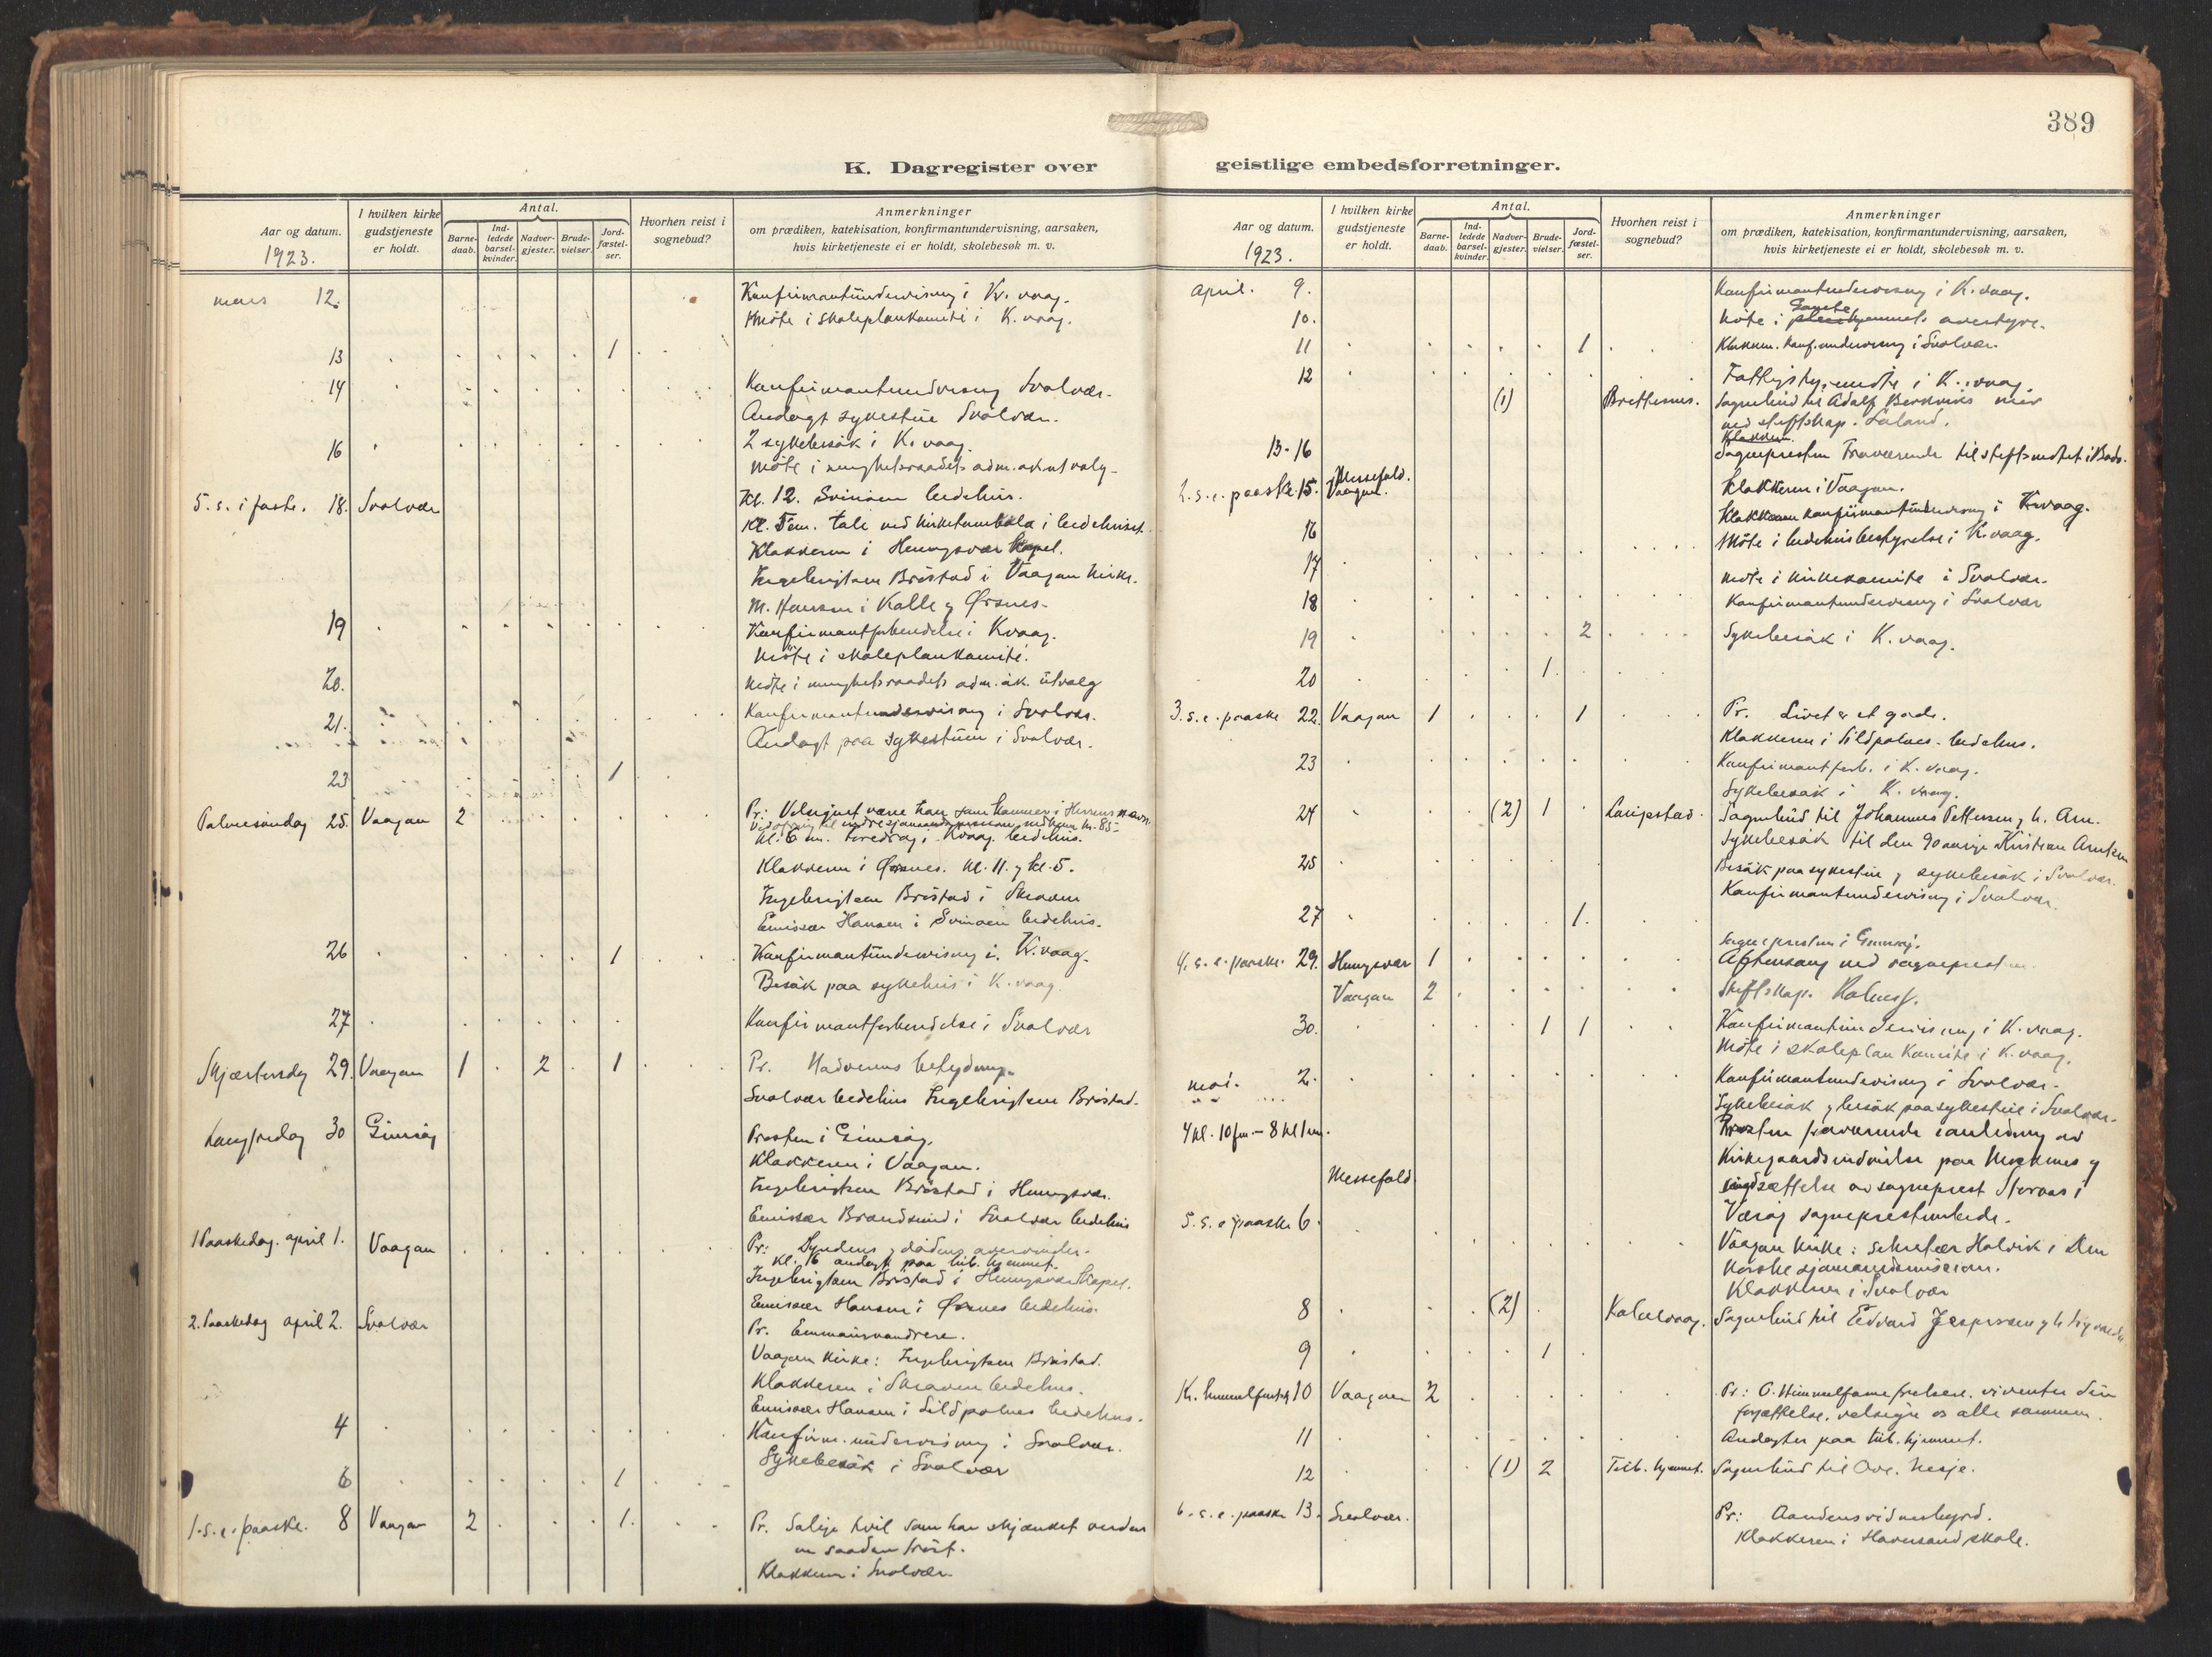 389
K. Dagregister over geistlige embedsforretninger.
Aar og datum.
1923.
I hvilken kirke gudstjeneste er holdt.
Antal.
Barne-daab.
Ind-ledede barsel-kvinder.
Nadver-gjester.
Brude-vielser.
Jord-fæstel-ser.
Hvorhen reist i sognebud?
Anmerkninger
om prædiken, katekisation, konfirmantundervisning, aarsaken,
hvis kirketjeneste ei er holdt, skolebesøk m. v.
mars 12. Konfirmantundervisning i K. vaag.
Møte i skoleplankomité i K. vaag.
13 1
14 Konfirmantundervisng Svolvær.
Andagt sykestue Svolvær.
16 2 sykebesøk i K. vaag.
Møte i menighetsraadets adm. utvalg
5. s. i faste. 18. Svolvær Kl. 12. Svinøen bedehus.
Kl. 5 em. tale ved kirketombola i bedehuset.
Klokkeren i Henningsvær kapel.
Ingebrigtsen Bröstad i Vaagan kirke.
M. Hansen i Kalle og Ørsnes.
19 Konfirmantforberedelse i Kvaag.
Møte i skoleplankomité.
20. Møte i menighetsraadets adm. utvalg
21. Konfirmantundervisning i Svolvær.
Andagt paa sykestuen i Svolvær.
23 1
Palmesøndag 25. Vaagan 2 Pr: Velsignet være han som kommer i Herrens navn.
Kl. 6 em. foredrag i Kvaag bedehus.
Klokkeren i Ørsnes. kl. 11. og kl. 5.
Ingebrigtsen Bröstad i Skraaven
Emissær Hansen i Svinøen bedehus.
26 1 Konfirmantundervisning i K. vaag.
Besøk paa sykehus i K. vaag.
27 Konfirmantforberedelse i Svolvær
Skjærtorsdag 29. Vaagan 1 2 1 Pr. Nadverens betydning.
Svolvær bedehus Ingebrigtsen Bröstad.
Langfredag 30 Gimsøy Presten i Gimsøy.
Klokkeren i Vaagan.
Ingebrigtsen Bröstad i Henningsvær.
Emissær Brandsund i Svolvær bedehus
1 Paaskedag. april 1. Vaagan Pr: Syndens og dødens overvinder.
Kl. 16 andagt paa tub. hjemmet.
Ingebrigtsen Bröstad i Henningsvær kapel.
Emissær Hansen i Ørsnes bedehus.
2. Paaskedag april 2. Svolvær Pr. Emmausvandrere.
Vaagan kirke: Ingebrigtsen Bröstad.
Klokkeren i Skraaven bedehus.
Emissær Hansen i Sildpolnes bedehus.
4 Konfirm. undervisning i Svolvær.
Sykebesøk i Svolvær
6 1
1. s. e. paaske. 8 Vaagan 2 1. Pr. Salige hvil som har skjænket verden
en saadan trøst.
Klokkeren i Svolvær.
Aar og datum.
1923.
I hvilken kirke gudstjeneste er holdt.
Antal.
Barne-daab.
Ind-ledede barsel-kvinder.
Nadver-gjester.
Brude-vielser.
Jord-fæstel-ser.
Hvorhen reist i sognebud?
Anmerkninger
om prædiken, katekisation, konfirmantundervisning, aarsaken,
hvis kirketjeneste ei er holdt, skolebesøk m. v.
april. 9. Konfirmantundervisng i K. vaag.
10. Møte i hjemmets overstyre.
11 1 Klokkeren. konf. undervisng i Svolvær.
12 Fattigstyremøte i K. vaag.
(1) Brettesnes. Sognebud til Adolf
13-16 Klokkeren.
Sognepresten fraværende til stiftsmøtet i Bodø.
2. s. e. paaske. 15. Messefald. Vaagan. Klokkeren i Vaagan.
16 Klokkeren konfirmantundervisng i Kvaag.
Møte i bedehusbestyrelse i K. vaag.
17 Møte i kirkekomite i Svolvær.
18 Konfirmantundervisng i Svolvær
19 2 Sykebesøk i K. vaag.
20 1
3. s. e. paaske 22. Vaagan 1 1 Pr. Livet er et gode.
Klokkeren i Sildpolnes bedehus.
23 Konfirmantforb. i K. vaag.
Sykebesøk i K. vaag.
24 (2) 1 Laupstad. Sognebud til Johannes Pettersen og h.
Sykebesøk til den 90 aarige Kristian Arntzen
25 Besøk paa sykestue og sykebesøk i Svolvær.
Konfirmantundervisng i Svolvær.
27 1.
Sognepresten i Gimsøy.
4. s. e. paaske. 29. Henningsvær 1 Aftensang ved sognepresten.
Vaagan 2
30. 1 1 Konfirmantundervisng i K. vaag.
Møte i skoleplankomite i K. vaag.
mai. 2. Konfirmantundervisng i Svolvær.
Sykebesøk og besøk paa sykestue i Svolvær.
4 kl. 10 fm. – 8 kl 1 em. Presten fraværende i anledning av
Kirkegaardsindvielse paa Moskenes og
Messefald. indsættelse av sogneprest Storaas i
Værøy sogneprestembede.
5. s. e. paaske 6. Vaagan kirke: sekretær Halvik i Den
norske sjømandsmission.
Klokkeren i Svolvær
8 (2) Kabelvaag. Sognebud til Edvard Jespersen og h.
9 1
Kr. himmelfartsdg 10 Vaagan 2 Pr: O. Himmelfarne frelser. vi venter din
forjættelse. velsigne os alle sammen.
11 Andagter paa tub. hjemmet.
12 (1) 2 Tub. hjemmet. Sognebud til Ove. Nesje.
6. s. e. paaske 13. Svolvær. Pr: Aandens vidnesbyrd.
Klokkeren i Hovsund skole.